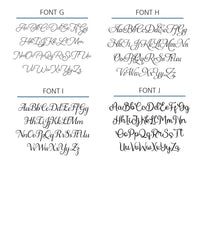 FONT G
AaBbCcDdEeFfGg
HhIiJjKkLlMmNn
OoPpQqRrSsTt
UuVvWwXxYyZz
FONT H
AaBbCcDdEeFfGg
HhIiJjKkLlMmNn
OoPpQqRrSsTtUu
VvWwXxYyZz
FONT I
AaBbCcDdEeFfGg
HhIiJjKkLlMm
NnOoPpQqRrSsTtUu
VvWwXxYyZz
FONT J
AaBbCcDdEeFfGg
HhIiJjKkLlMmNn
OoPpQqRrSsTt
UuVvWwXxYyZz